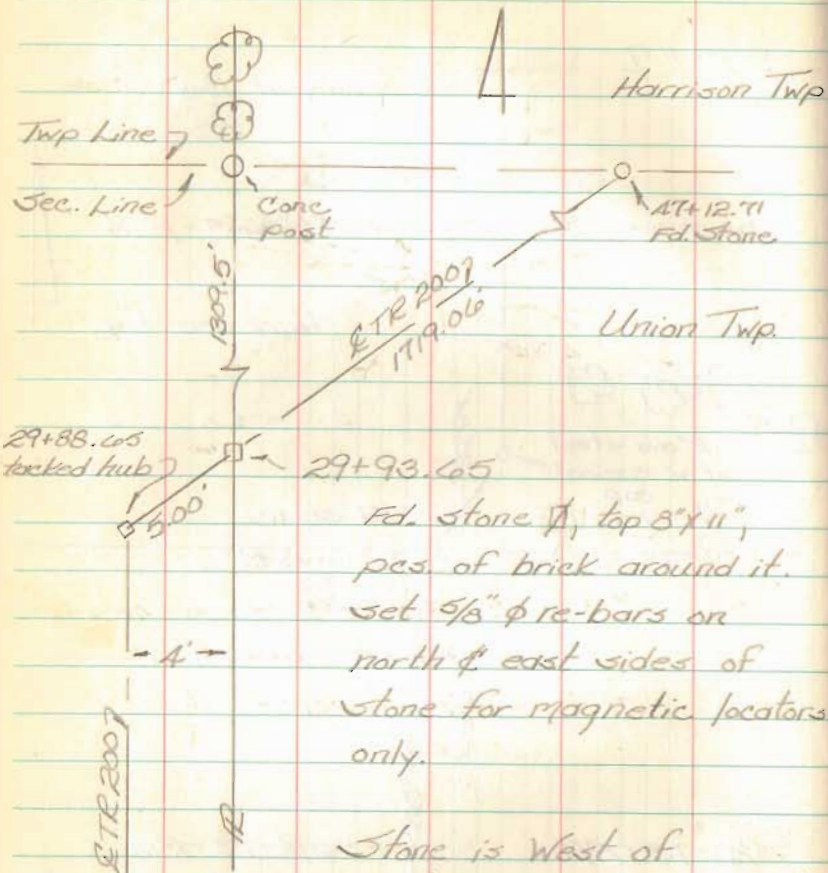 Harrison Twp
Twp Line
Sec. Line
Conc
post
47+12.71
Fd. Stone
1309.5'
℄ TR 2007
1719.06'
Union Twp.
29+88.65
tacked hub
5.00'
29+93.65
Fd. stone top 8"x11",
pcs. of brick around it.
set 5/8" ϕ re-bars on
north & east sides of
stone for magnetic locators
only.
4'
℄ TR 2007
Stone is West of